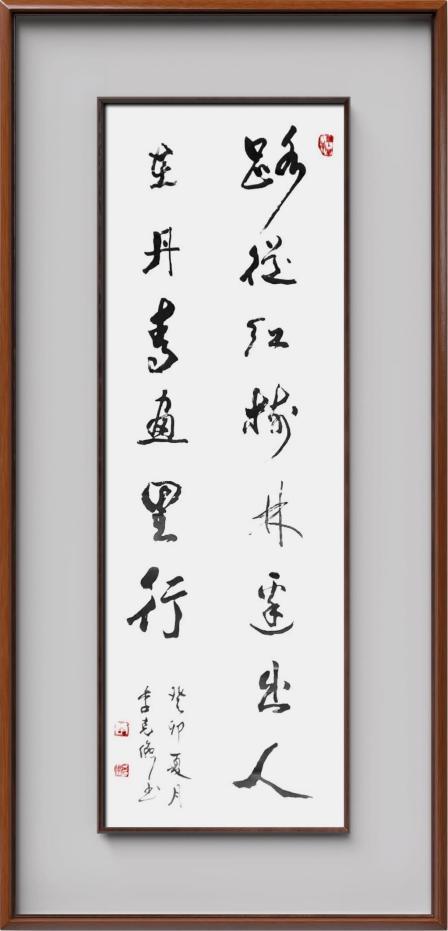 路從紅樹林邊出人
在丹青畫里行
癸卯夏月
李